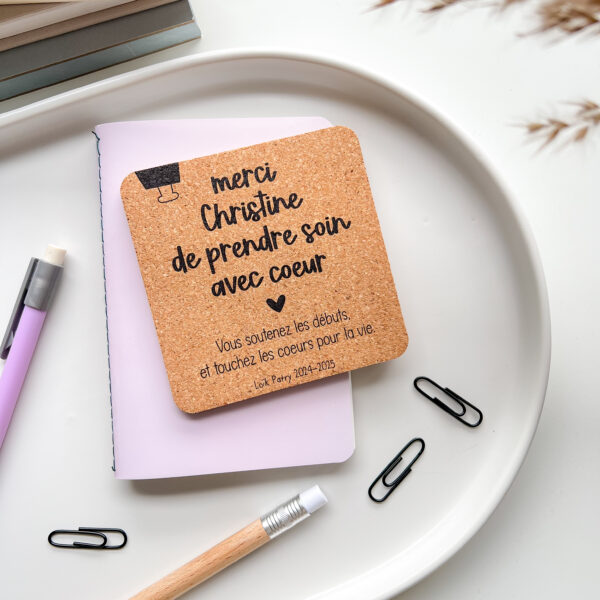 merci
Christine
de prendre soin
avec coeur
Vous soutenez les débuts,
et touchez les coeurs pour la vie.
Loïk Patry 2024-2025